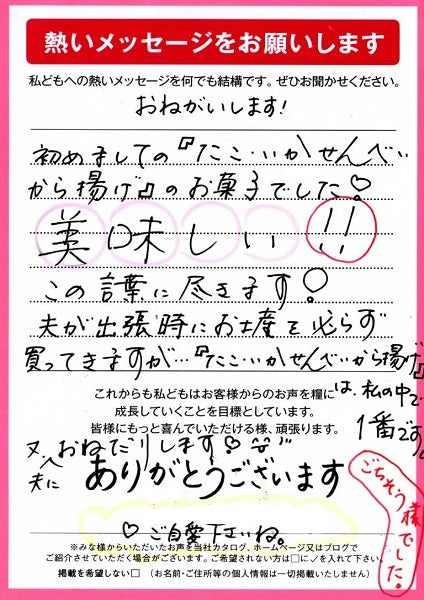 熱いメッセージをお願いします
私どもへの熱いメッセージを何でも結構です。ぜひお聞かせください。
おねがいします!
初めましての『たこ・いかせんべい
から揚げ』のお菓子でした♡
美味しい!!
この言葉に尽きます!
夫が出張時にお土産を必らず
買ってきますが…『たこ・いかせんべいから揚げ』
は、私の中で
1番です。
これからも私どもはお客様からのお声を糧に
成長していくことを目標としています。
皆様にもっと喜んでいただける様、頑張ります。
又、夫に
おねだりします!♡
ありがとうございます
ごちそう様でした!
♡ご自愛下さいね。
※みな様からいただいたお声を当社カタログ、ホームページ又はブログで
ご紹介させていただく場合がございます。ご希望されない方は□に✓を入れて下さい。
掲載を希望しない□ (お名前・ご住所等の個人情報は一切掲載いたしません)